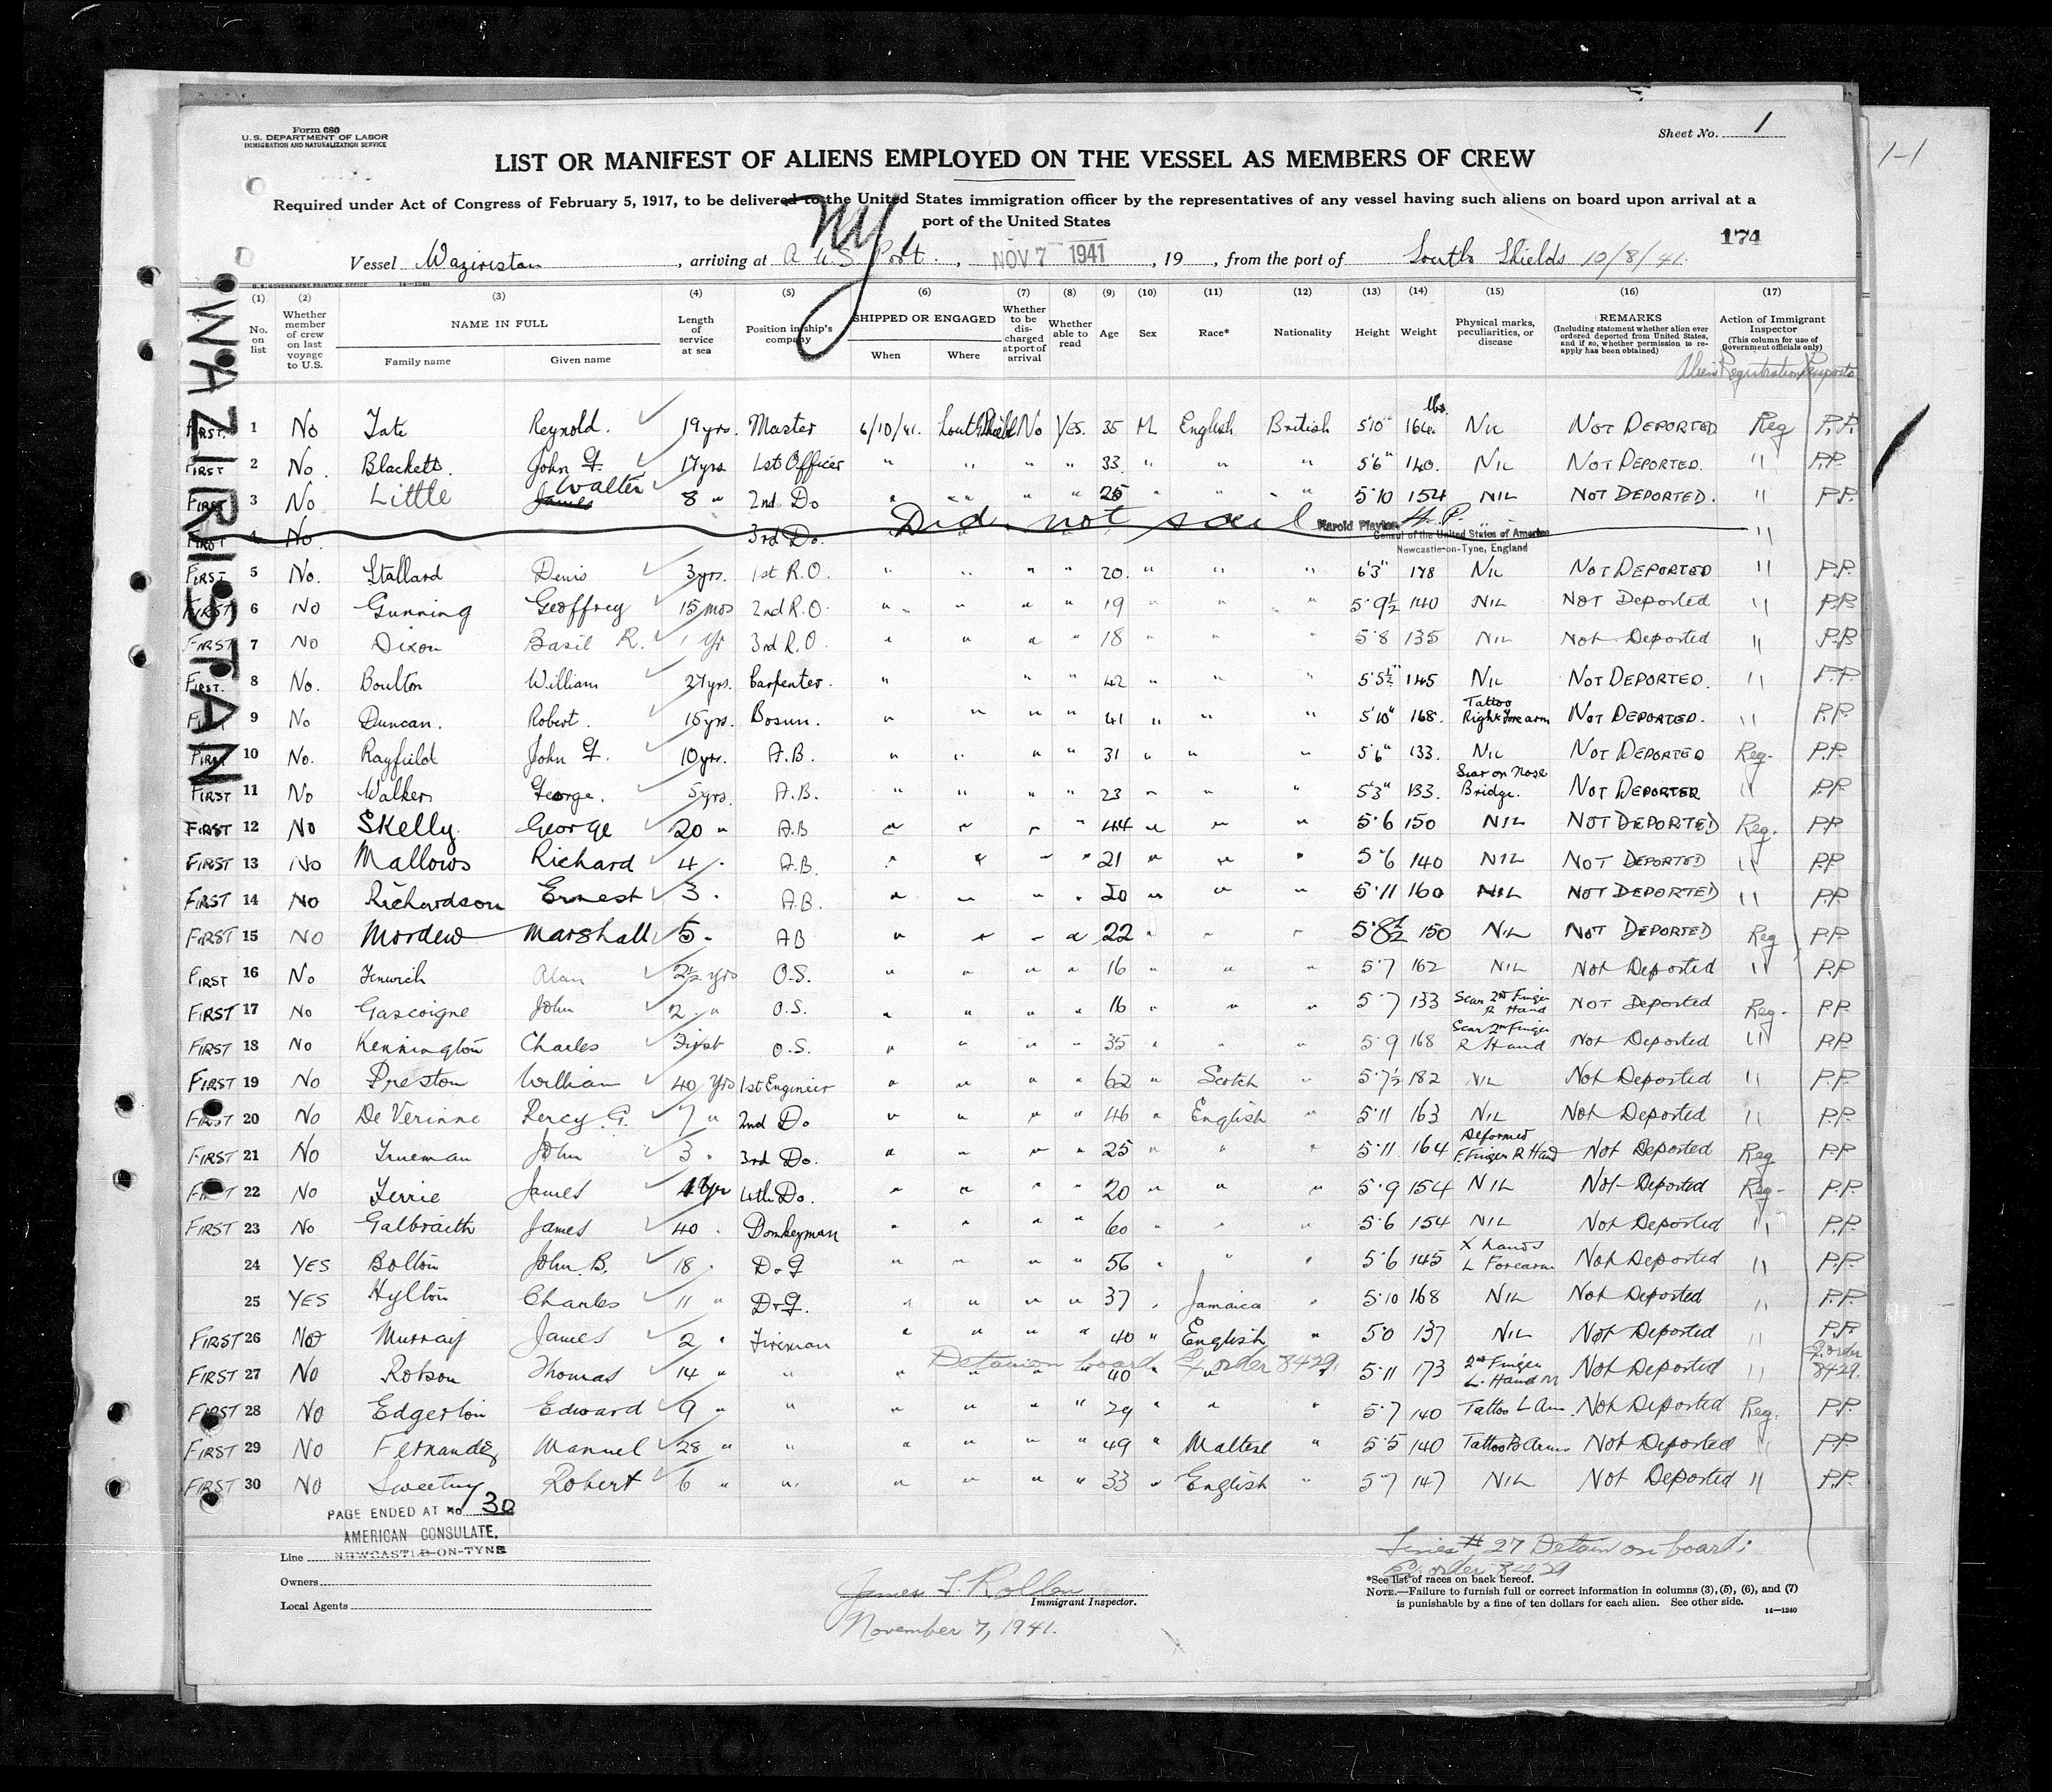 Form 680
U.S. DEPARTMENT OF LABOR
IMMIGRATION AND NATURALIZATION SERVICE
Sheet No. 1
1-1
LIST OR MANIFEST OF ALIENS EMPLOYED ON THE VESSEL AS MEMBERS OF CREW
Required under Act of Congress of February 5, 1917, to be delivered to the United States immigration officer by the representatives of any vessel having such aliens on board upon arrival at a
port of the United States
NY
174
Vessel Waziristan, arriving at A U.S. Port., NOV 7 1941, 19, from the port of South Shields 10/8/41.
U.S. GOVERNMENT PRINTING OFFICE 14—1240
WAZIRISTAN
(1) (2) (3) (4) (5) (6) (7) (8) (9) (10) (11) (12) (13) (14) (15) (16) (17)
No. on list
Whether member of crew on last voyage to U.S.
NAME IN FULL
Family name
Given name
Length of service at sea
Position in ship's company
SHIPPED OR ENGAGED
When
Where
Whether to be discharged at port of arrival
Whether able to read
Age
Sex
Race*
Nationality
Height
Weight
Physical marks, peculiarities, or disease
REMARKS
(Including statement whether alien ever ordered deported from United States, and if so, whether permission to re-apply has been obtained)
Action of Immigrant Inspector
(This column for use of Government officials only)
Alien Registration Passports
FIRST. 1 No Tate Reynold. 19 yrs. Master 6/10/41. South Shields No Yes. 35 M English British 5'10" 164 lbs. NIL NOT DEPORTED Reg P.P.
FIRST 2 No. Blackett. John F. 17 yrs 1st Officer " " " " 33 " " " 5'6" 140. NIL NOT DEPORTED. " P.P.
FIRST 3 No Little James Walter 8 " 2nd Do " " " " 25 " " " 5'10 154 NIL NOT DEPORTED. " P.P.
FIRST 4 No. 3rd Do. Did not sail H.P. "
Harold Playter
Consul of the United States of America
Newcastle-on-Tyne, England
FIRST 5 No. Stallard Denis 3 yrs. 1st R.O. " " " " 20. " " " 6'3" 178 NIL NOT DEPORTED " P.P.
FIRST 6 No Gunning Geoffrey 15 mos 2nd R.O. " " " " 19 " " " 5'9½ 140 NIL NOT Deported " P.P.
FIRST 7 No Dixon Basil R. 1 Yr 3rd R.O. " " " " 18 " " " 5'8 135 NIL Not Deported " P.P.
FIRST. 8 No. Boulton William 27 yrs. Carpenter. " " " 42 " " " 5'5½" 145 NIL NOT DEPORTED. " P.P.
FIRST 9 No Duncan. Robert. 15 yrs. Bosun. " " " " 41 " " " 5'10" 168. Tattoo Right forearm NOT DEPORTED. " P.P.
FIRST 10 No. Rayfield John F. 10 yrs. A.B. " " " " 31 " " " 5'6" 133. NIL NOT DEPORTED Reg. P.P.
FIRST 11 No Walker George. 5 yrs. A.B. " " " " 23 " " " 5'3" 133. Scar on Nose Bridge. NOT DEPORTED " P.P.
FIRST 12 No Skelly George 20 " A.B " " " " 44 " " " 5'6 150 NIL NOT DEPORTED Reg. P.P.
FIRST 13 No Mallows Richard 4 " A.B. " " " " 21 " " " 5'6 140 NIL NOT DEPORTED " P.P.
FIRST 14 No Richardson Ernest 3 " A.B. " " " " 20 " " " 5'11 160 NIL NOT DEPORTED " P.P.
FIRST 15 NO Mordew Marshall 5 " AB " " " " 22 " " " 5'8½ 150 NIL NOT DEPORTED Reg P.P.
FIRST 16 No Fenwick Alan 2½ yrs O.S. " " " " 16 " " " 5'7 162 NIL Not Deported " P.P
FIRST 17 No Gascoigne John 2 " O.S. " " " " 16 " " " 5'7 133 Scar 2nd Finger R Hand NOT Deported Reg. P.P.
FIRST 18 No Kennington Charles First O.S. " " " " 35 " " " 5'9 168 Scar 2nd Finger R Hand Not Deported " P.P.
FIRST 19 No Preston William 40 Yrs 1st Engineer " " " " 62 " Scotch " 5'7½ 182 NIL Not Deported " P.P.
FIRST 20 No De Verinne Percy G. 7 " 2nd Do " " " " 46 " English " 5'11 163 NIL Not Deported " P.P.
FIRST 21 No Trueman John 3 " 3rd Do. " " " " 25 " " " 5'11 164 Deformed F. Finger R Hand Not Deported Reg P.P.
FIRST 22 No Ferrie James 1 Yr 4th Do. " " " " 20 " " " 5'9 154 NIL Not Deported Reg. P.P.
FIRST 23 No Galbraith James 40 " Donkeyman " " " " 60 " " " 5'6 154 NIL Not Deported " P.P.
24 YES Bolton John B. 18 " D & G " " " " 56 " " " 5'6 145 X hands L Forearm Not Deported " P.P.
25 YES Hylton Charles 11 " D & G. " " " " 37 " Jamaica " 5'10 168 NIL Not Deported " P.P.
FIRST 26 No Murray James 2 " Fireman " " " " 40 " English " 5'0 137 NIL Not Deported " P.P.
Detain on board Ex. order 8429.
FIRST 27 No Robson Thomas 14 " " " " " " 40 " " " 5'11 173 2nd Finger L. Hand Not Deported " Ex. order 8429.
FIRST 28 No Edgerton Edward 9 " " " " " " 29 " " " 5'7 140 Tattoo L Arm. Not Deported Reg. P.P.
FIRST 29 No Fernandez Manuel 28 " " " " " " 49 " Maltese " 5'5 140 Tattoo B Arms Not Deported " P.P.
FIRST 30 No Sweetny Robert 6 " " " " " " 33 " English " 5'7 147 NIL Not Deported " P.P.
PAGE ENDED AT No 30
AMERICAN CONSULATE,
NEWCASTLE-ON-TYNE
Line
Owners
Local Agents
James F.
Immigrant Inspector.
November 7, 1941.
Lines # 27 Detain on board:
Ex order 8429
*See list of races on back hereof.
NOTE.—Failure to furnish full or correct information in columns (3), (5), (6), and (7)
is punishable by a fine of ten dollars for each alien. See other side.
14—1240